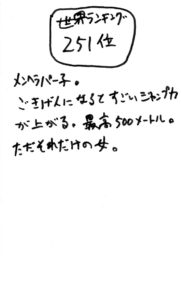 世界ランキング
251位
メンヘラパー子。
ごきげんになるとすごいジャンプ力
が上がる。最高500メートル。
ただそれだけの女。